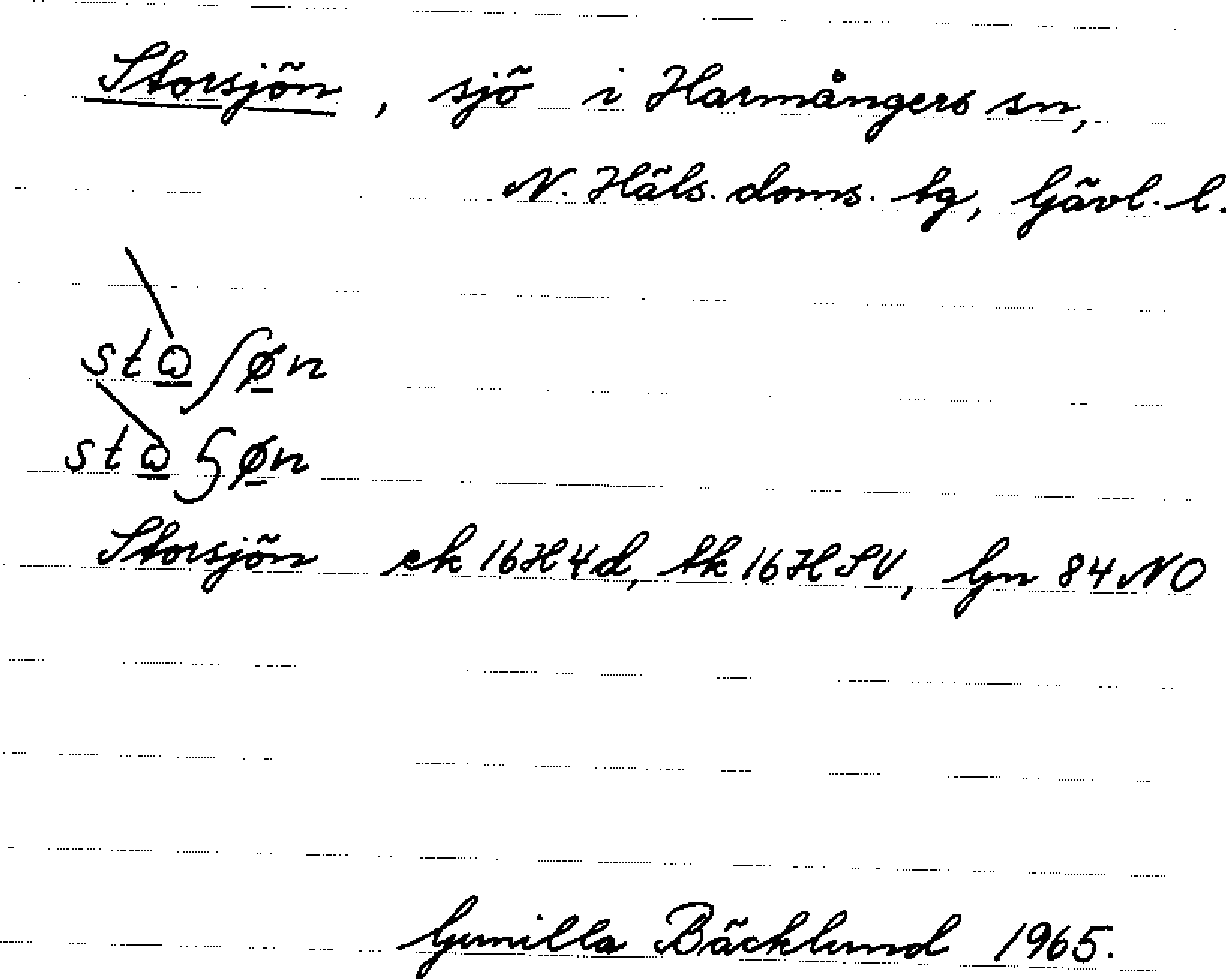 Storsjön, sjö i Harmångers sn,
N. Häls. doms. tg, Gävl. l.
Storsjön ek 16H4d, tk 16HSV, Gn 84NO
Gunilla Bäcklund 1965.